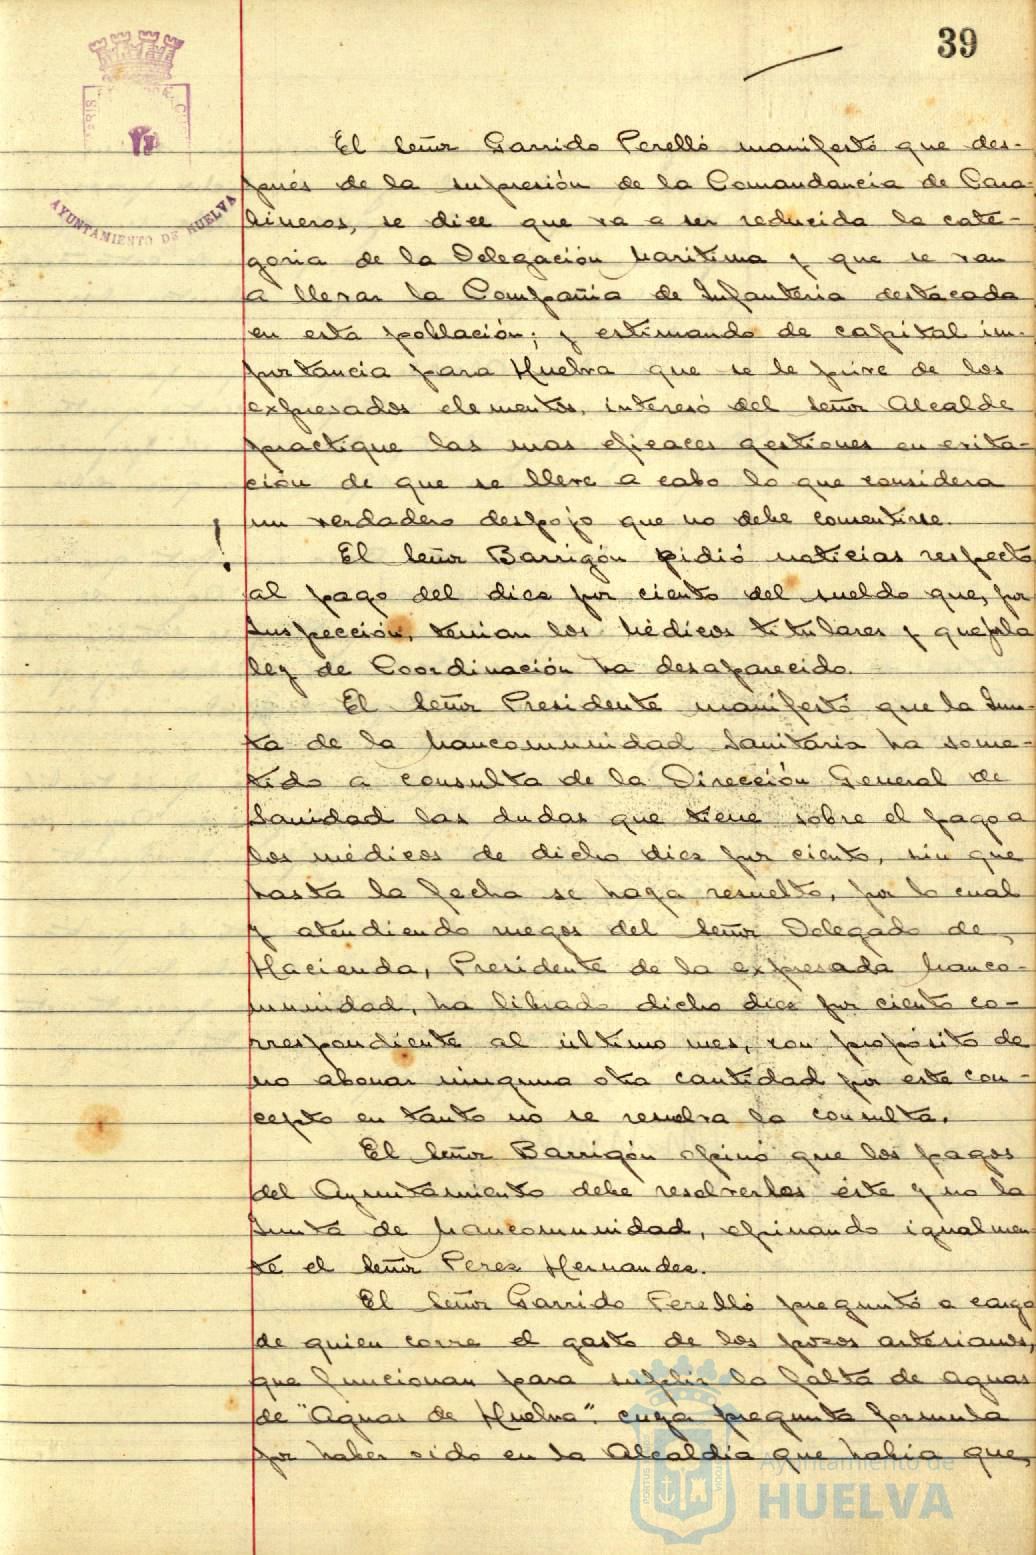 39
AYUNTAMIENTO DE HUELVA
El Señor Garrido Perelló manifestó que des-
pués de la supresión de la Comandancia de Cara-
bineros, se dice que va a ser reducida la cate-
goria de la Delegación Maritima y que se van
a llevar la Compañia de Infanteria destacada
en esta población; y estimando de capital im-
portancia para Huelva que se le prive de los
expresados elementos, interesó del Señor Alcalde
practique las mas eficaces gestiones en evita-
ción de que se lleve a cabo lo que considera
un verdadero despojo que no debe comentirse.
El Señor Barrigón pidió noticias respecto
al pago del diez por ciento del sueldo que, por
Inspección, tenian los Médicos titulares y que, la
ley de Coordinación ha desaparecido.
El Señor Presidente manifestó que la Jun-
ta de la Mancomunidad Sanitaria ha some-
tido a consulta de la Dirección General de
Sanidad las dudas que tiene sobre el pago a
los médicos de dicho diez por ciento, sin que
hasta la fecha se haya resuelto, por lo cual
y atendiendo ruegos del Señor Delegado de
Hacienda, Presidente de la expresada Manco-
munidad, ha librado dicho diez por ciento co-
rrespondiente al último mes, con propósito de
no abonar ninguna otra cantidad por este con-
cepto en tanto no se resuelva la consulta.
El Señor Barrigón opinó que los pagos
del Ayuntamiento debe resolverlos éste y no la
Junta de Mancomunidad, opinando igualmen-
te el Señor Perez Hernandez.
El Señor Garrido Perelló preguntó a cargo
de quien corre el gasto de los pozos artesianos,
que funcionan para suplir la falta de aguas
de "Aguas de Huelva". cuya pregunta formula
por haber oido en la Alcaldía que habia que,
Ayuntamiento de
HUELVA